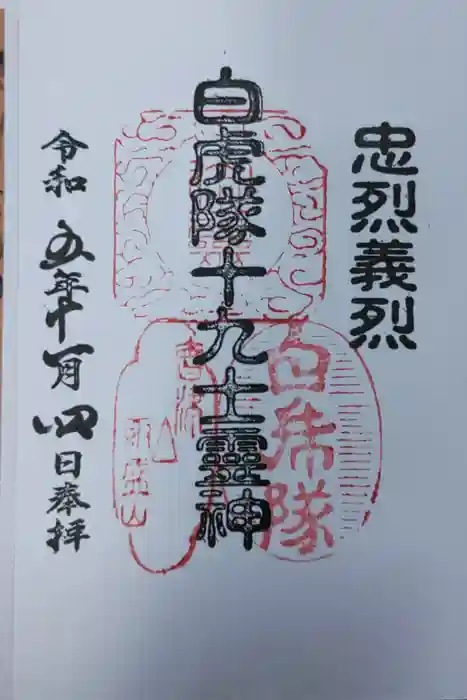 忠烈義烈
白虎隊十九士靈神
白虎隊
令和五年十一月四日奉拝